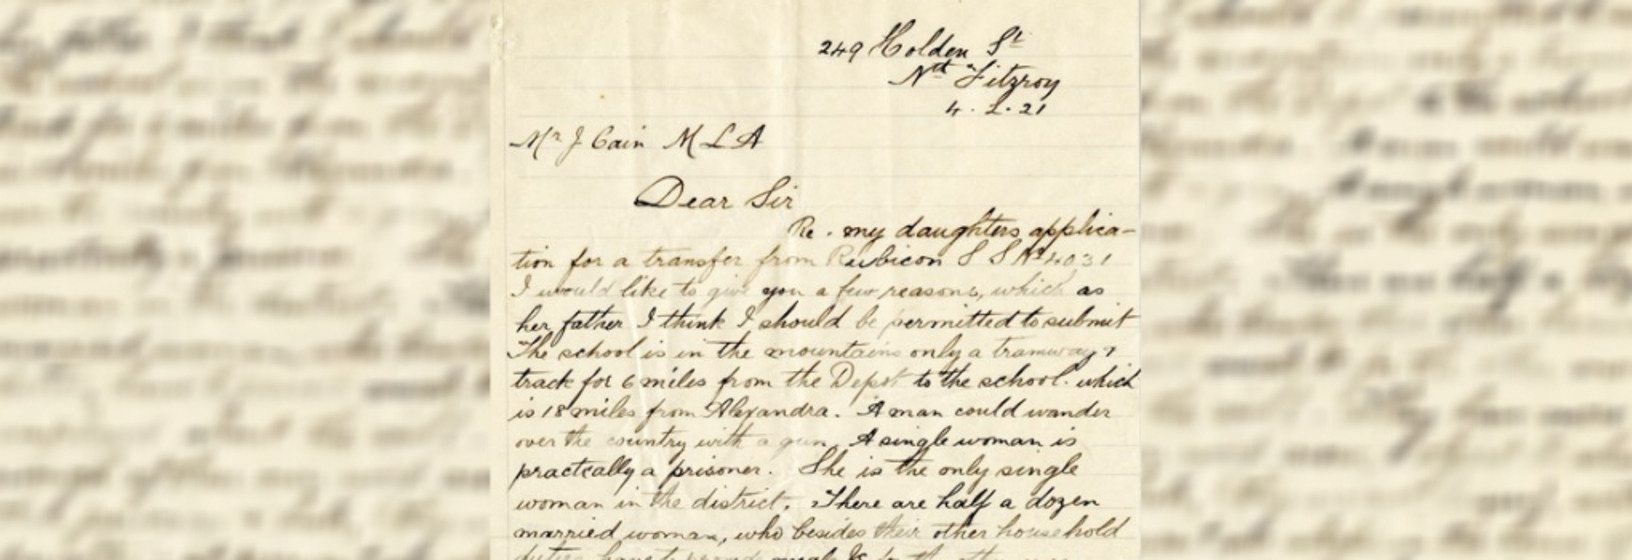 249 Holden St
Nth Fitzroy
4.2.21
Mr J Cain MLA
Dear Sir
Re. my daughters applica-
tion for a transfer from Rubicon S S No 4031
I would like to give you a few reasons, which as
her father I think I should be permitted to submit
The school is in the mountains only a tramway &
track for 6 miles from the Depot to the school. which
is 18 miles from Alexandra. A man could wander
over the country with a gun. A single woman is
practcally a prisoner. She is the only single
woman in the district. There are half a dozen
married woman, who besides their other household
duties have to